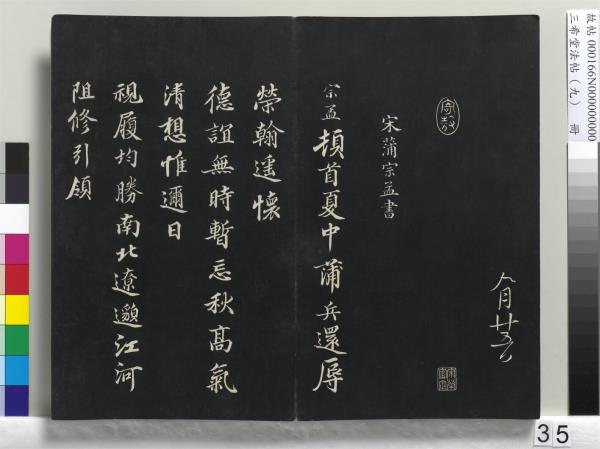 故帖 000166N000000000
三希堂法帖（九） 冊
八月廿五日
宋蒲宗孟書
宗孟頓首夏中蒲兵還辱
榮翰遥懷
德誼無時暫忘秋髙氣
清想惟邇日
視履均勝南北遼邈江河
阻修引領
35